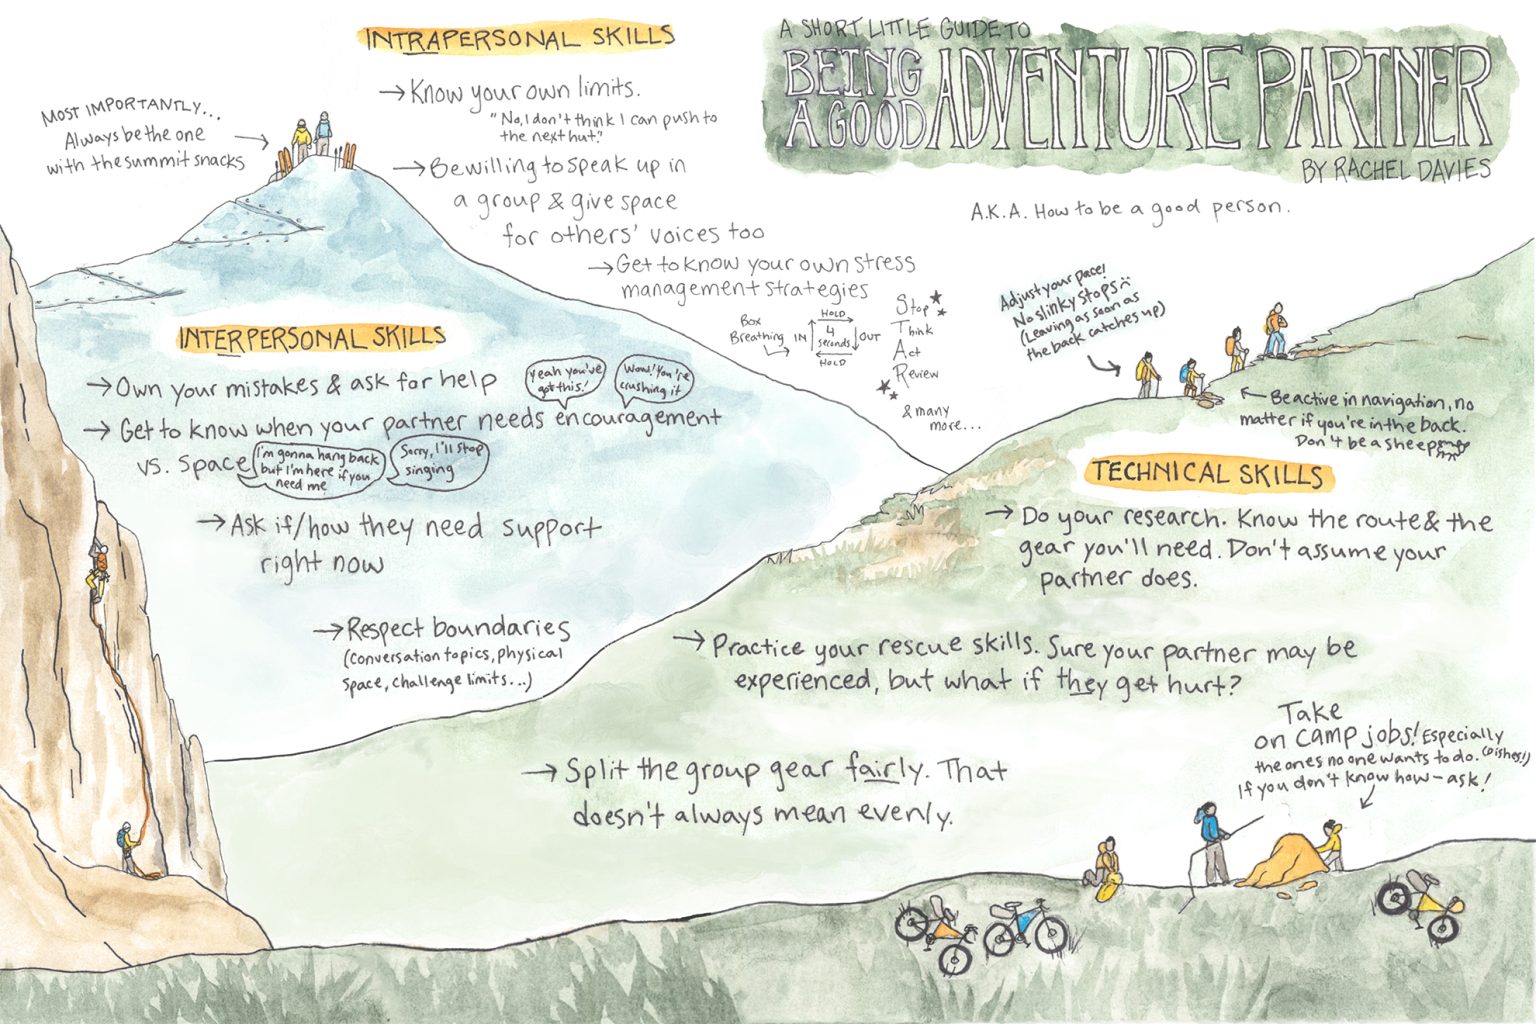 A SHORT LITTLE GUIDE TO
BEING
A GOOD
ADVENTURE PARTNER
BY RACHEL DAVIES
A.K.A. How to be a good person.
INTRAPERSONAL SKILLS
→ Know your own limits.
"No, I don't think I can push to
the next hut."
→ Be willing to speak up in
a group & give space
for others' voices too
→ Get to know your own stress
management strategies
Box
Breathing
IN
HOLD
4
seconds
OUT
HOLD
Stop
Think
Act
Review
& many
more...
MOST IMPORTANTLY...
Always be the one
with the summit snacks
INTERPERSONAL SKILLS
→ Own your mistakes & ask for help
→ Get to know when your partner needs encouragement
Yeah you've
got this!
Wow! You're
crushing it
vs. space
I'm gonna hang back
but I'm here if you
need me
Sorry, I'll stop
singing
→ Ask if/how they need support
right now
→ Respect boundaries
(conversation topics, physical
space, challenge limits...)
Adjust your pace!
No slinky stops
(Leaving as soon as
the back catches up)
Be active in navigation, no
matter if you're in the back.
Don't be a sheep
TECHNICAL SKILLS
→ Do your research. Know the route & the
gear you'll need. Don't assume your
partner does.
→ Practice your rescue skills. Sure your partner may be
experienced, but what if they get hurt?
→ Split the group gear fairly. That
doesn't always mean evenly.
Take
on camp jobs! Especially
the ones no one wants to do. (Dishes!)
If you don't know how - ask!